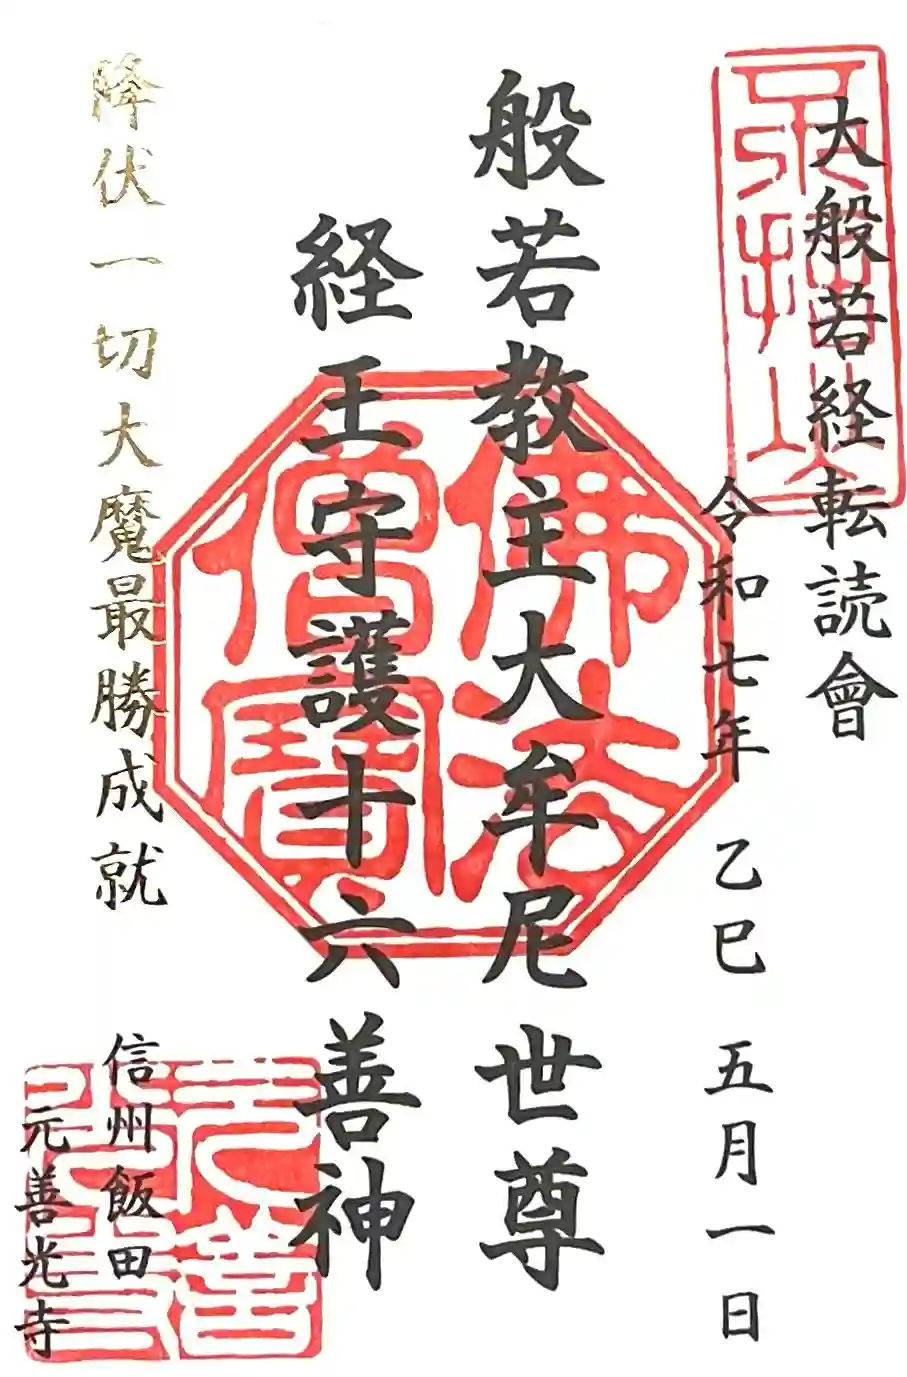 大般若経転読會
令和七年 乙巳 五月一日
般若教主大牟尼世尊
経王守護十六善神
降伏一切大魔最勝成就
信州飯田
元善光寺
佛法僧寳